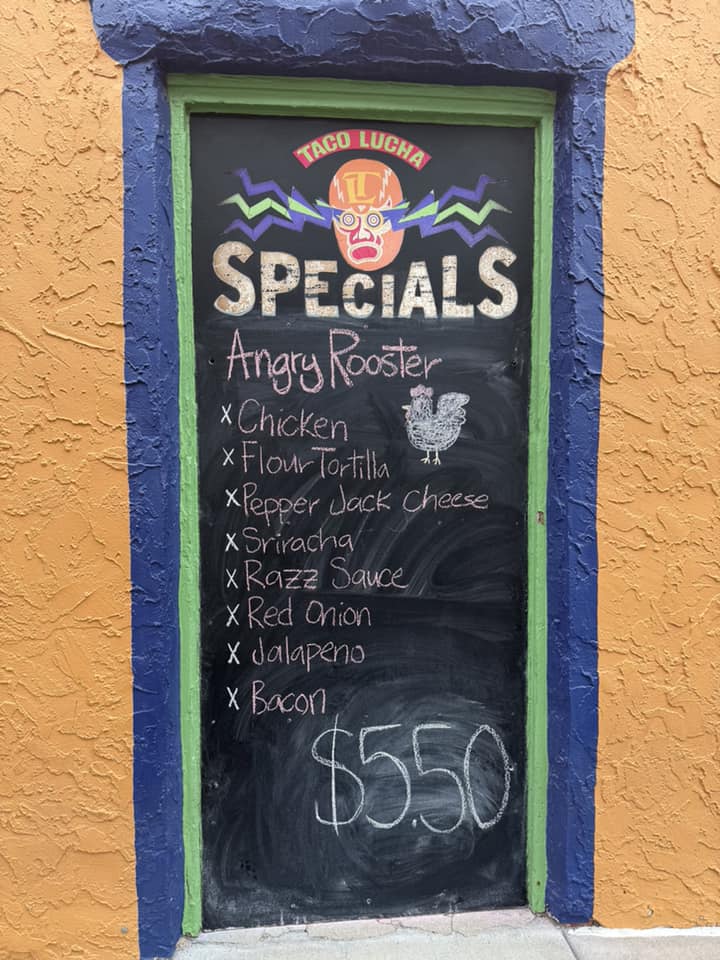 TACO LUCHA
LT
SPECiALS
Angry Rooster
x Chicken
x Flour Tortilla
x Pepper Jack Cheese
x Sriracha
x Razz Sauce
x Red Onion
x Jalapeno
x Bacon
$5.50